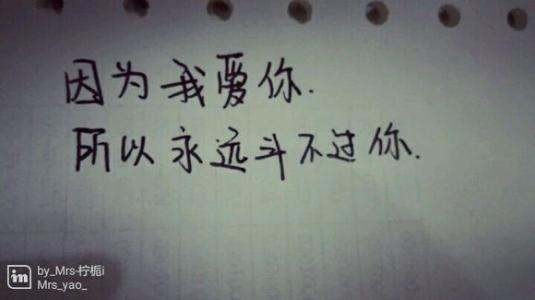 因为我爱你.
所以永远斗不过你.
in
by_Mrs-柠栀i
Mrs_yao_